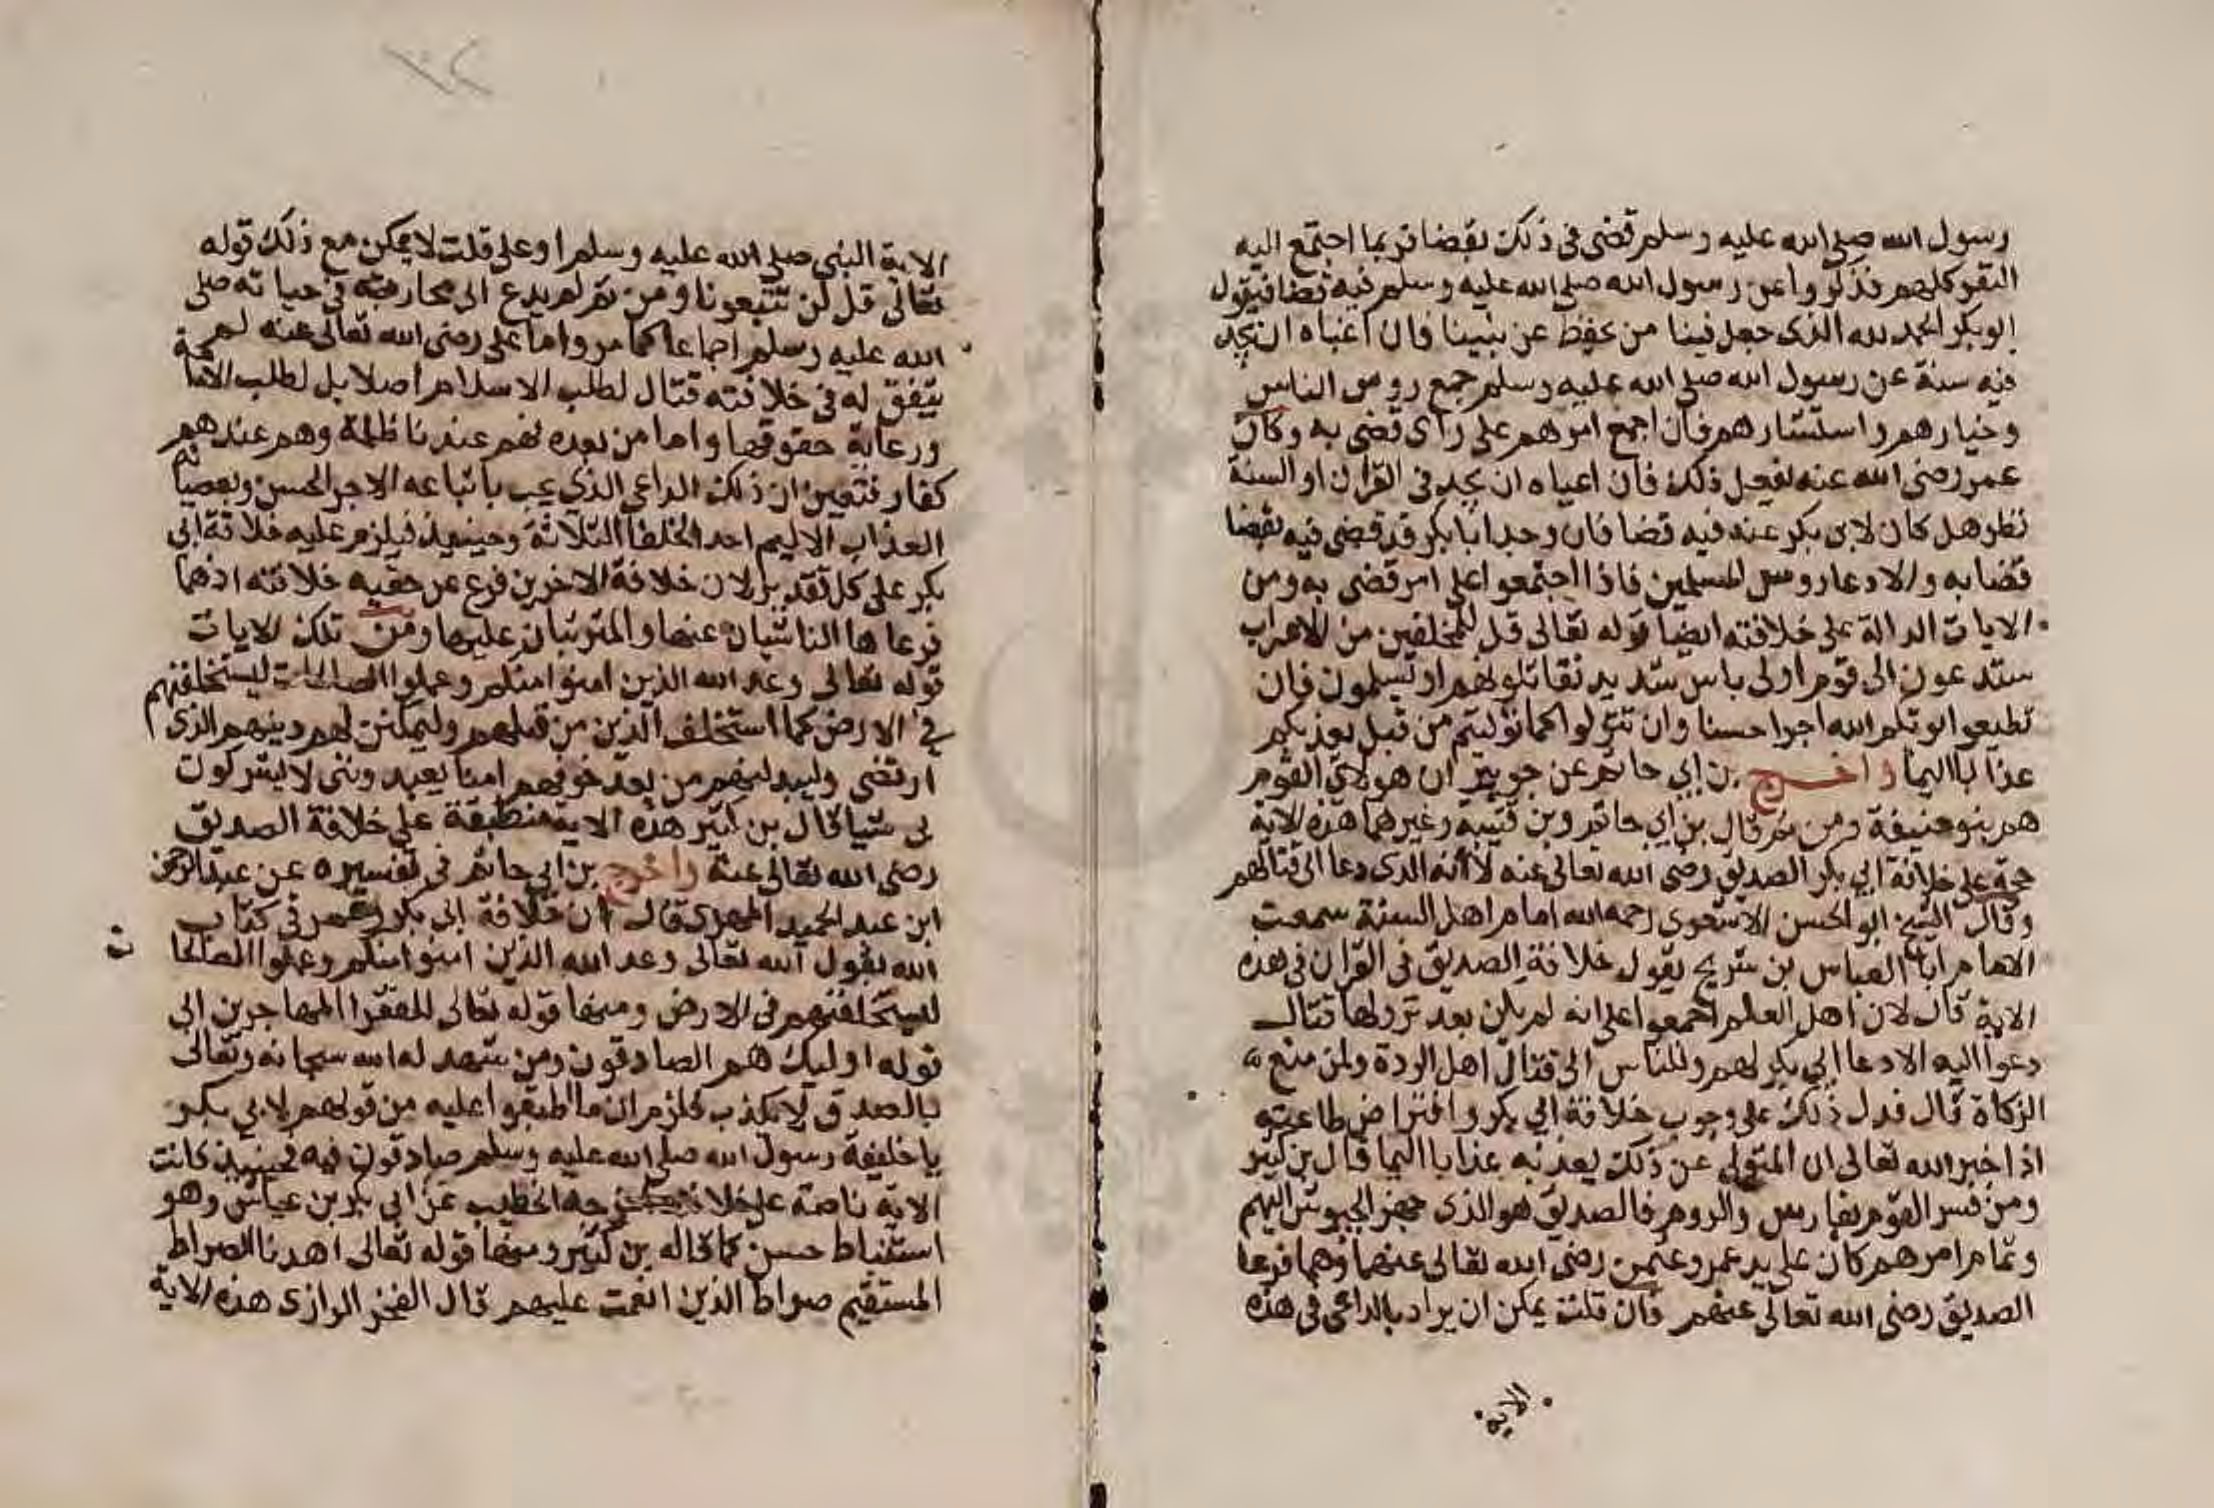 رسول الله صلى الله عليه وسلم قضى في ذلك بقضا فربما اجتمع اليه
النفر كلهم فذكروا عن رسول الله صلى الله عليه وسلم فيه قضا فيقول
ابو بكر الحمد لله الذي جعل فينا من يحفظ عن نبينا فان اعياه ان يجد
فيه سنة عن رسول الله صلى الله عليه وسلم جمع روس الناس
وخيارهم واستشارهم فان اجمع امرهم على راي قضى به وكان
عمر رضي الله عنه يفعل ذلك فان اعياه ان يجد في القران او السنة
نظر هل كان لابي بكر عنه فيه قضا فان وجد ابا بكر قد قضى فيه بقضا
قضا به والا دعا روس المسلمين فاذا اجتمعوا على امر قضى به ومن
الايات الدالة على خلافته ايضا قوله تعالى قل للمخلفين من الاعراب
ستدعون الى قوم اولى باس شديد تقاتلونهم او يسلمون فان
تطيعوا يوتكم الله اجرا حسنا وان تتولوا كما توليتم من قبل يعذبكم
عذابا اليما واخرج بن ابي حاتم عن جويبر ان هولاي القوم
هم بنو حنيفة ومن ثم قال بن ابي حاتم وبن قتيبه وغيرهما هذه الاية
حجة على خلافة ابي بكر الصديق رضي الله تعالى عنه لانه الذي دعا الى قتالهم
وقال الشيخ ابو الحسن الاشعري رحمه الله امام اهل السنة سمعت
الامام ابا العباس بن سريج يقول خلافة الصديق في القران في هذه
الاية قال لان اهل العلم اجمعوا على انه لم يكن بعد نزولها قتال
دعوا اليه الا دعا ابي بكر لهم وللناس الى قتال اهل الردة ولمن منع
الزكاة قال فدل ذلك على وجوب خلافة ابي بكر وافتراض طاعته
اذ اخبر الله تعالى ان المتولي عن ذلك يعذبه عذابا اليما قال بن كثير
ومن فسر القوم بفارس والروم فالصديق هو الذي جهز الجيوش اليهم
وتمام امرهم كان على يد عمر وعثمن رضي الله تعالى عنهما وهما فرعا
الصديق رضي الله تعالى عنهم فان قلت يمكن ان يراد بالداعي في هذه
الاية
١٢
الاية النبي صلى الله عليه وسلم او على قلت لا يمكن مع ذلك قوله
تعالى قل لن تتبعونا ومن ثم لم يدع الى محاربته في حياته صلى
الله عليه وسلم اجماعا كما مر واما على رضي الله تعالى عنه لم
يتفق له في خلافته قتال لطلب الاسلام اصلا بل لطلب الامامة
ورعاية حقوقها واما من بعده فهم عندنا ظلمة وهم عندهم
كفار فتعين ان ذلك الداعي الذي يجب باتباعه الاجر الحسن وبعصيانه
العذاب الاليم احد الخلفا الثلاثة وحينيذ فيلزم عليه خلافة ابي
بكر على كل تقدير لان خلافة الاخرين فرع عن حقيه خلافته اذ هما
فرعاها الناشيان عنها والمترتبان عليها ومن تلك الايات
قوله تعالى وعد الله الذين امنوا منكم وعملوا الصالحات ليستخلفنهم
في الارض كما استخلف الذين من قبلهم وليمكنن لهم دينهم الذي
ارتضى وليبدلنهم من بعد خوفهم امنا يعبدونني لا يشركون
بي شيا قال بن كثير هذه الاية منطبقة على خلافة الصديق
رضي الله تعالى عنه واخرج بن ابي حاتم في تفسيره عن عبد الرحمن
ابن عبد الحميد المهري قال ان خلافة ابي بكر وعمر في كتاب
الله يقول الله تعالى وعد الله الذين امنوا منكم وعملوا الصالحا
ت
ليستخلفنهم في الارض ومنها قوله تعالى للفقرا المهاجرين الى
قوله اوليك هم الصادقون ومن شهد له الله سبحانه وتعالى
بالصدق لا يكذب فلزم ان ما اطبقوا عليه من قولهم لابي بكر
يا خليفة رسول الله صلى الله عليه وسلم صادقون فيه فحينيذ كانت
الاية ناصة على خلافته اخرجه الخطيب عن ابي بكر بن عياش وهو
استنباط حسن كما قاله بن كثير ومنها قوله تعالى اهدنا الصراط
المستقيم صراط الذين انعمت عليهم قال الفخر الرازي هذه الاية